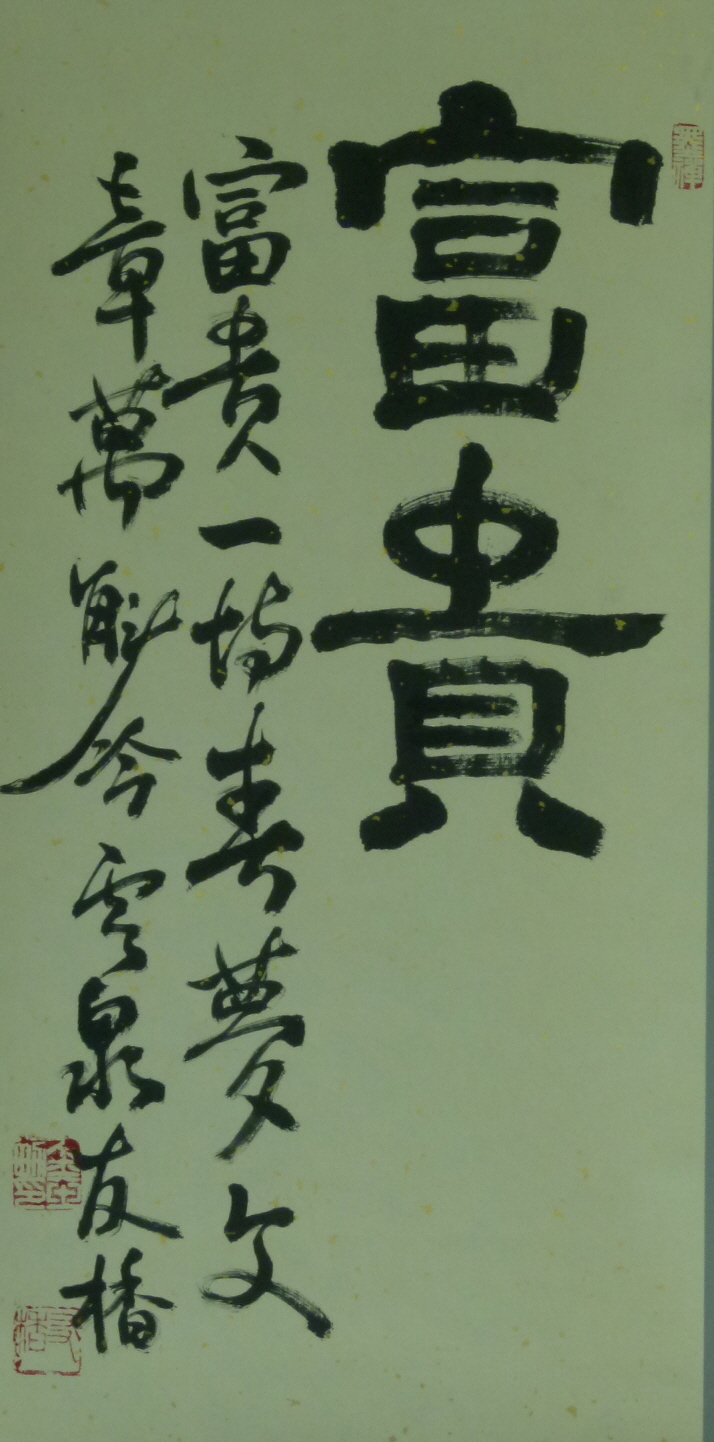 富貴
富貴一場春夢文
章萬斛冷雲泉友椿